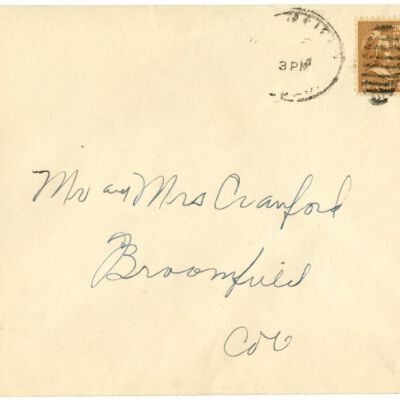 3 PM
Mr and Mrs Cranford
Broomfield
Col